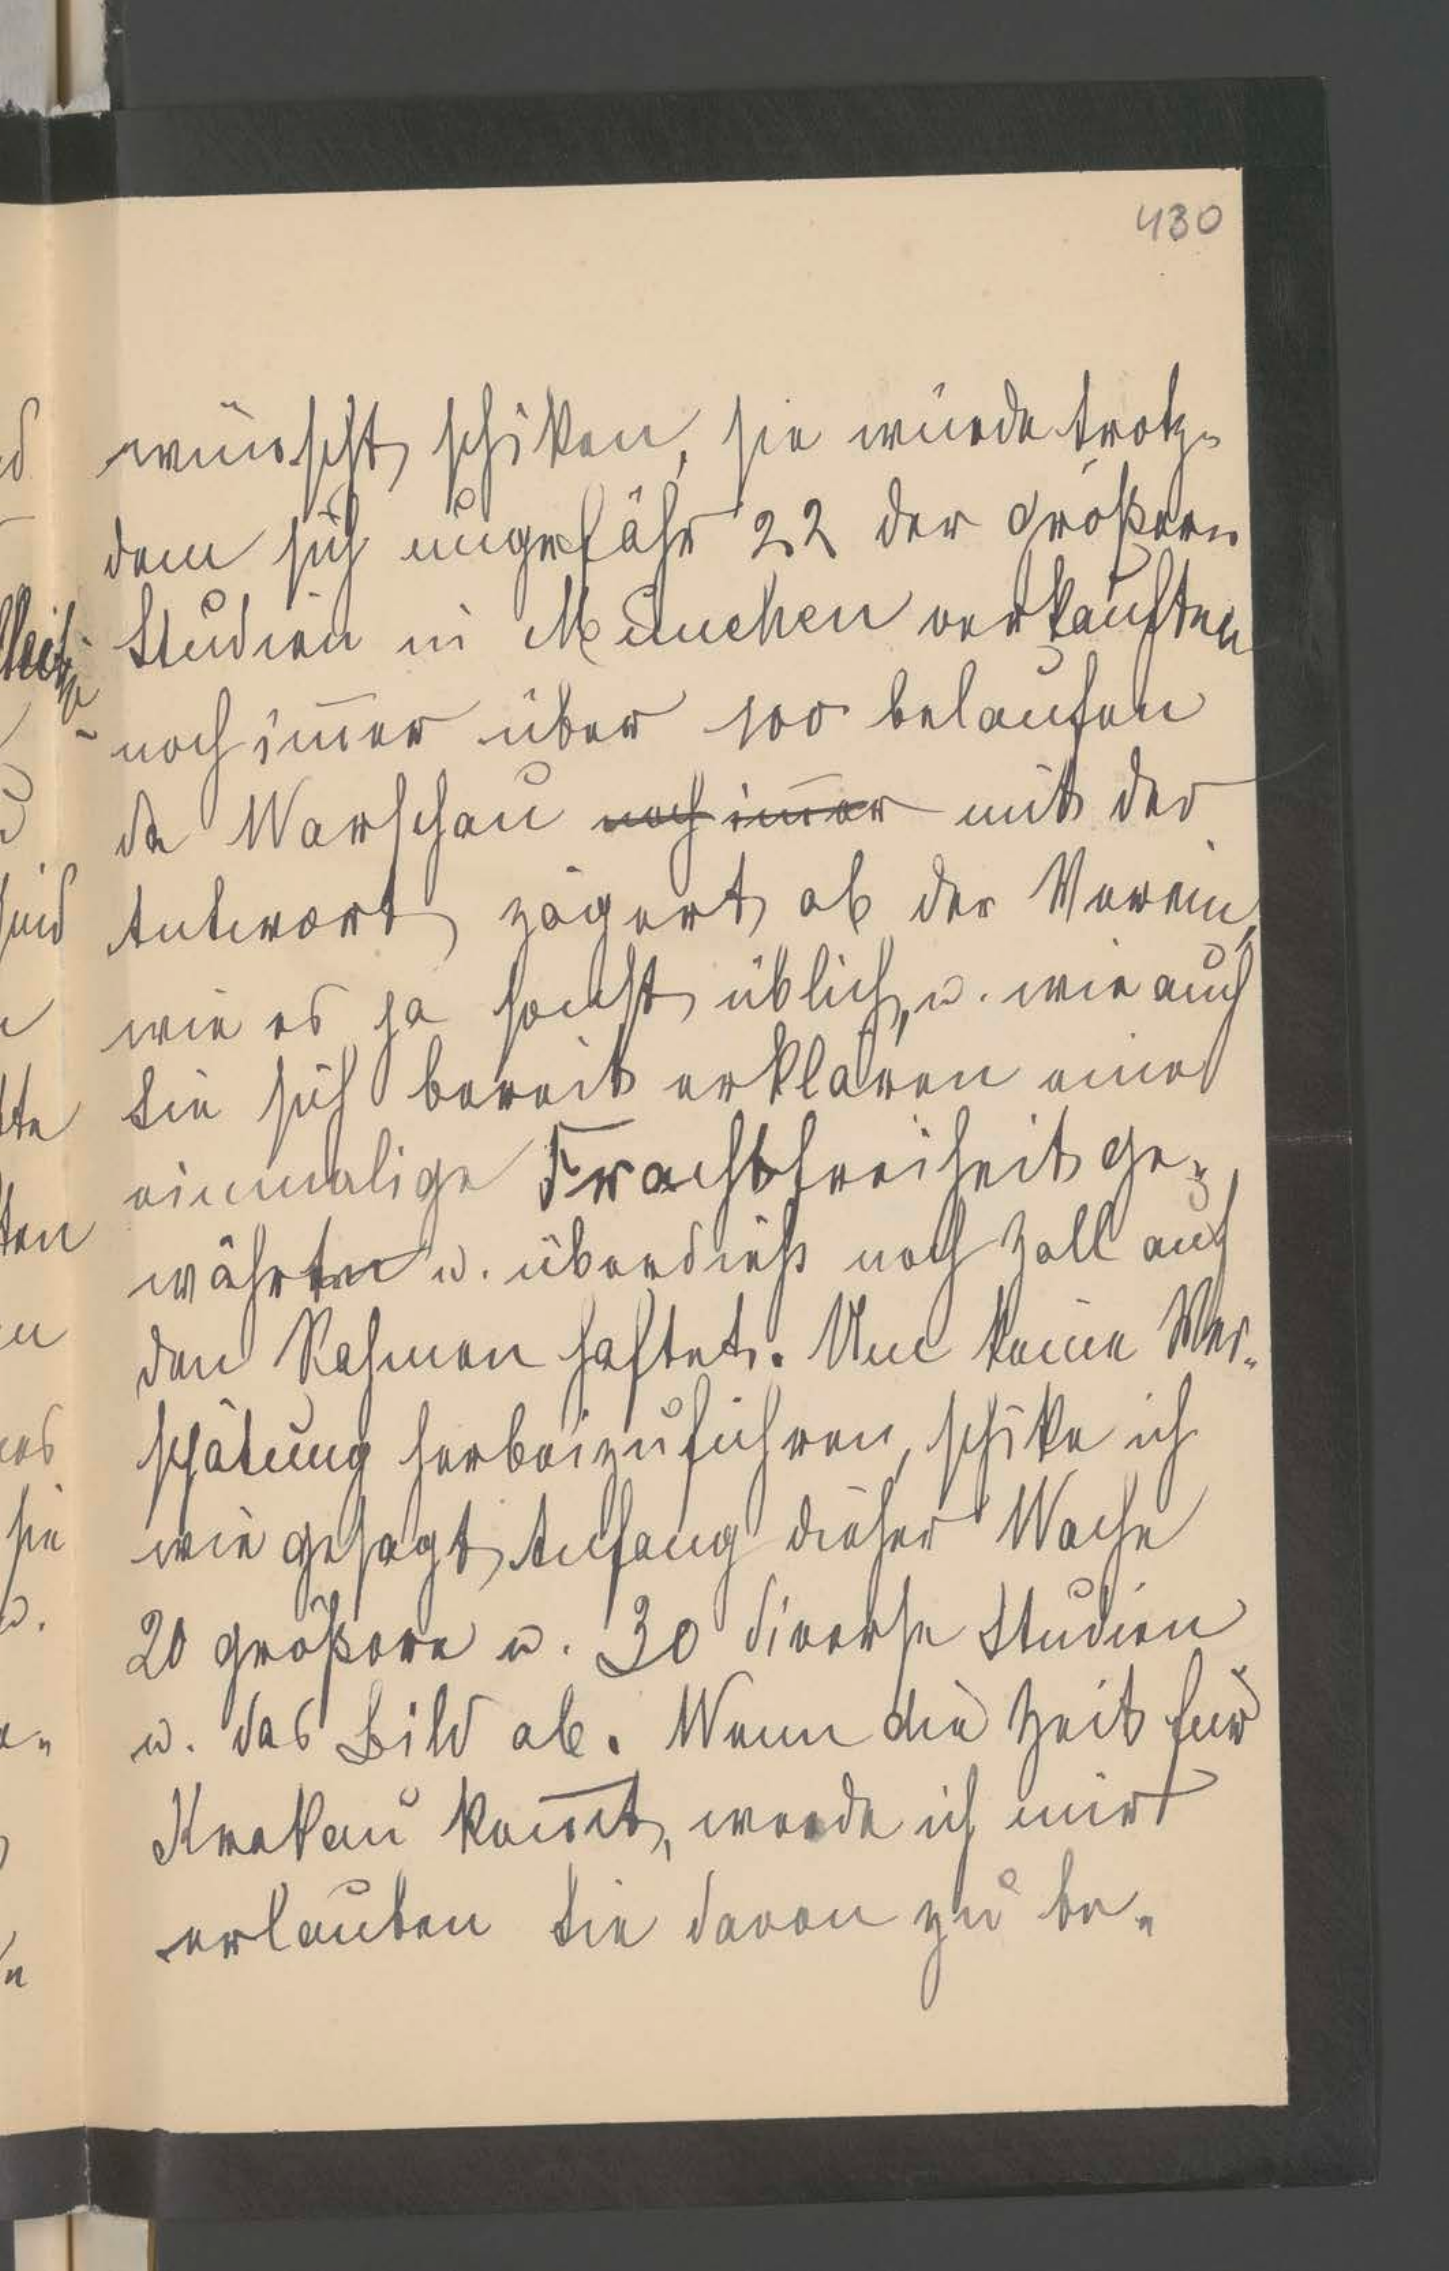 430
wünscht schiken, sie würde trotz-
dem sich ungefähr 22 der größern
Studien in München verkauften
noch im̄er über 100 belaufen
da Warschau noch im̄er mit der
Antwort zögert ob der Verein,
wie es ja sonst üblich, u. wie auch
Sie sich bereit erklären eine
einmalige Frachtfreiheit ge-
währt u. überdieß noch Zoll auf
den Rahmen haftet. Um keine Ver-
spätung herbeizuführen, schike ich
wie gesagt Anfang dieser Woche
20 größere u. 30 diverse Studien
u. das Bild ab. Wenn die Zeit für
Krakau kom̄t, werde ich mir
erlauben Sie davon zu be-